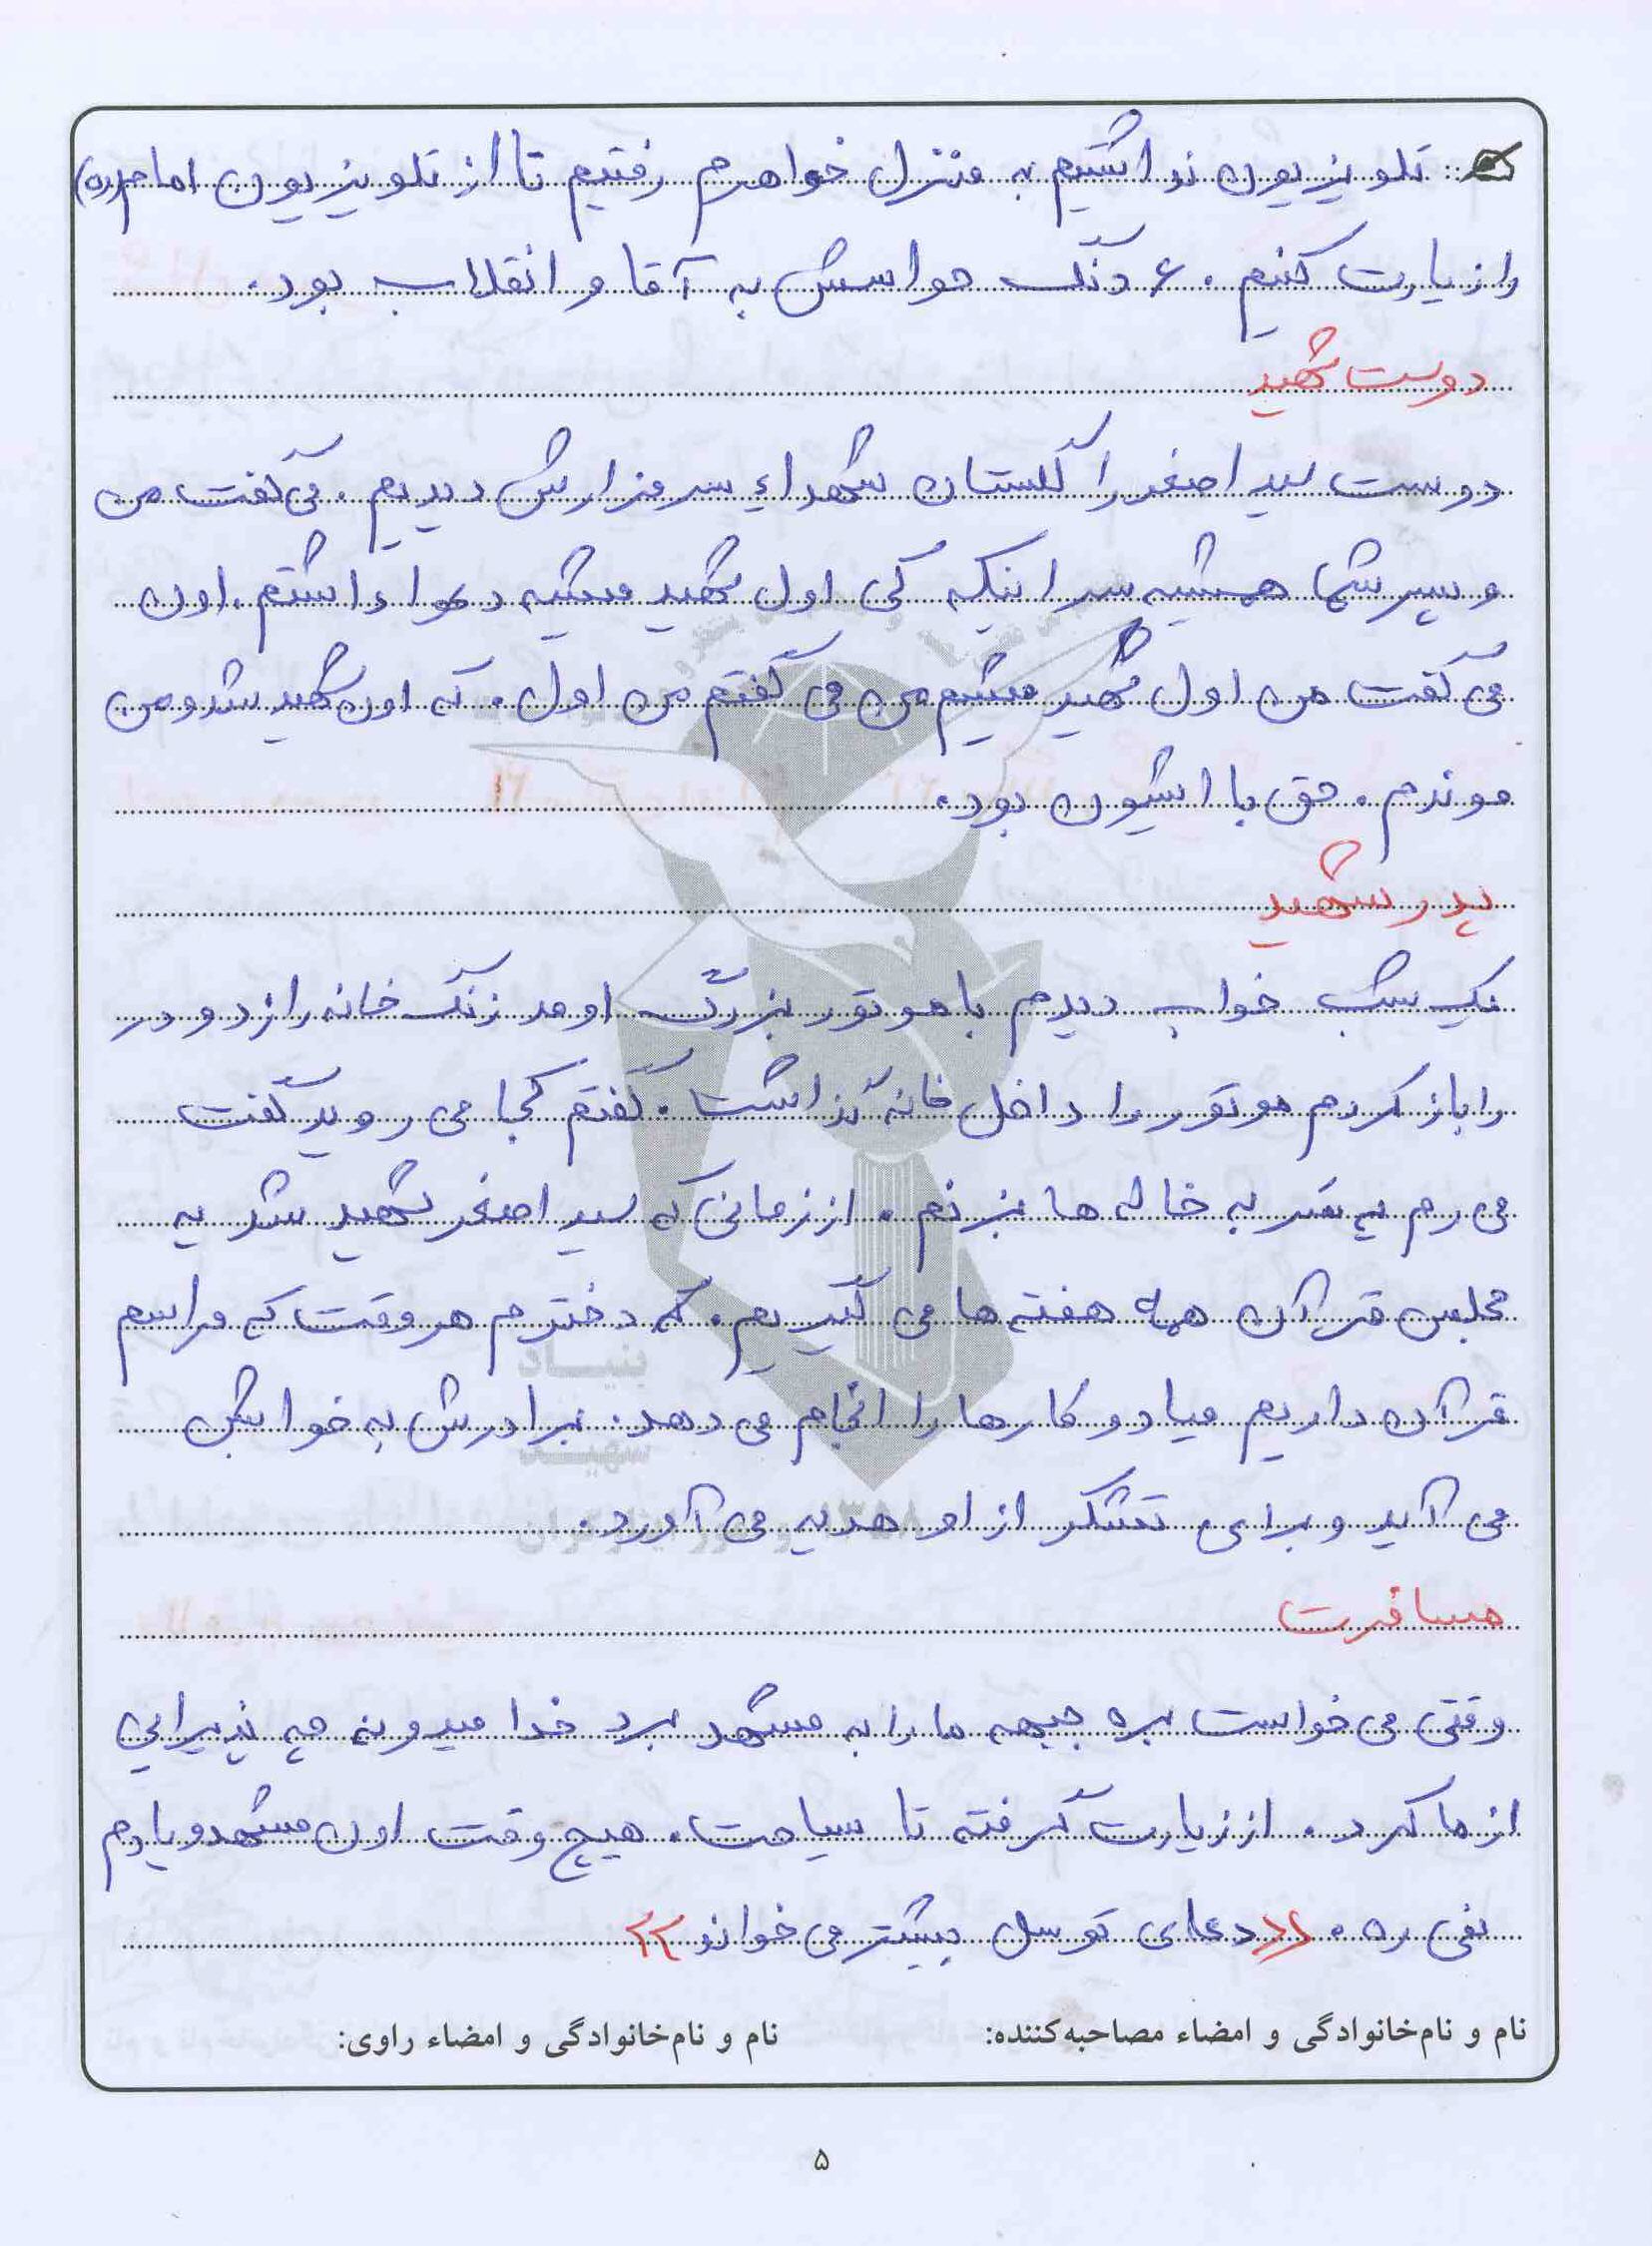 تلویزیون نداشتیم به منزل خواهرم رفتیم تا از تلویزیون امام(ره)
را زیارت کنیم . ۶ دنگ حواسش به آقا و انقلاب بود.
دوست شهید
دوست سید اصغر را گلستان شهداء سر مزارش دیدیم . می گفت من
و پسر شما همیشه سر اینکه کی اول شهید میشیه دعوا داشتم . اون
می گفت من اول شهید میشیم من می گفتم من اول . که اون شهید شد و من
موندم . حق با ایشون بود.
پدر شهید
یک شب خواب دیدم با موتور بزرگ اومد زنگ خانه را زد و در
را باز کردم موتور را داخل خانه گذاشت . گفتم کجا می روید گفت
می رم یه سر به خاله ها بزنم . از زمانی که سید اصغر شهید شد یه
مجلس قرآن همه هفته ها می گیریم . که دخترم هر وقت که مراسم
قرآن داریم میاد و کارها را انجام می دهد . برادرش به خوابش
می آید و برای تشکر از او هدیه می آورد .
مسافرت
وقتی می خواست بره جبهه ما را به مشهد برد خدا میدونه چه پذیرایی
از ما کرد . از زیارت گرفته تا سیاحت . هیچ وقت اون مشهدو یادم
نمی ره . «دعای توسل بیشتر می خواند»
نام و نام‌خانوادگی و امضاء مصاحبه‌کننده: نام و نام‌خانوادگی و امضاء راوی:
۵
بنیاد
شهید